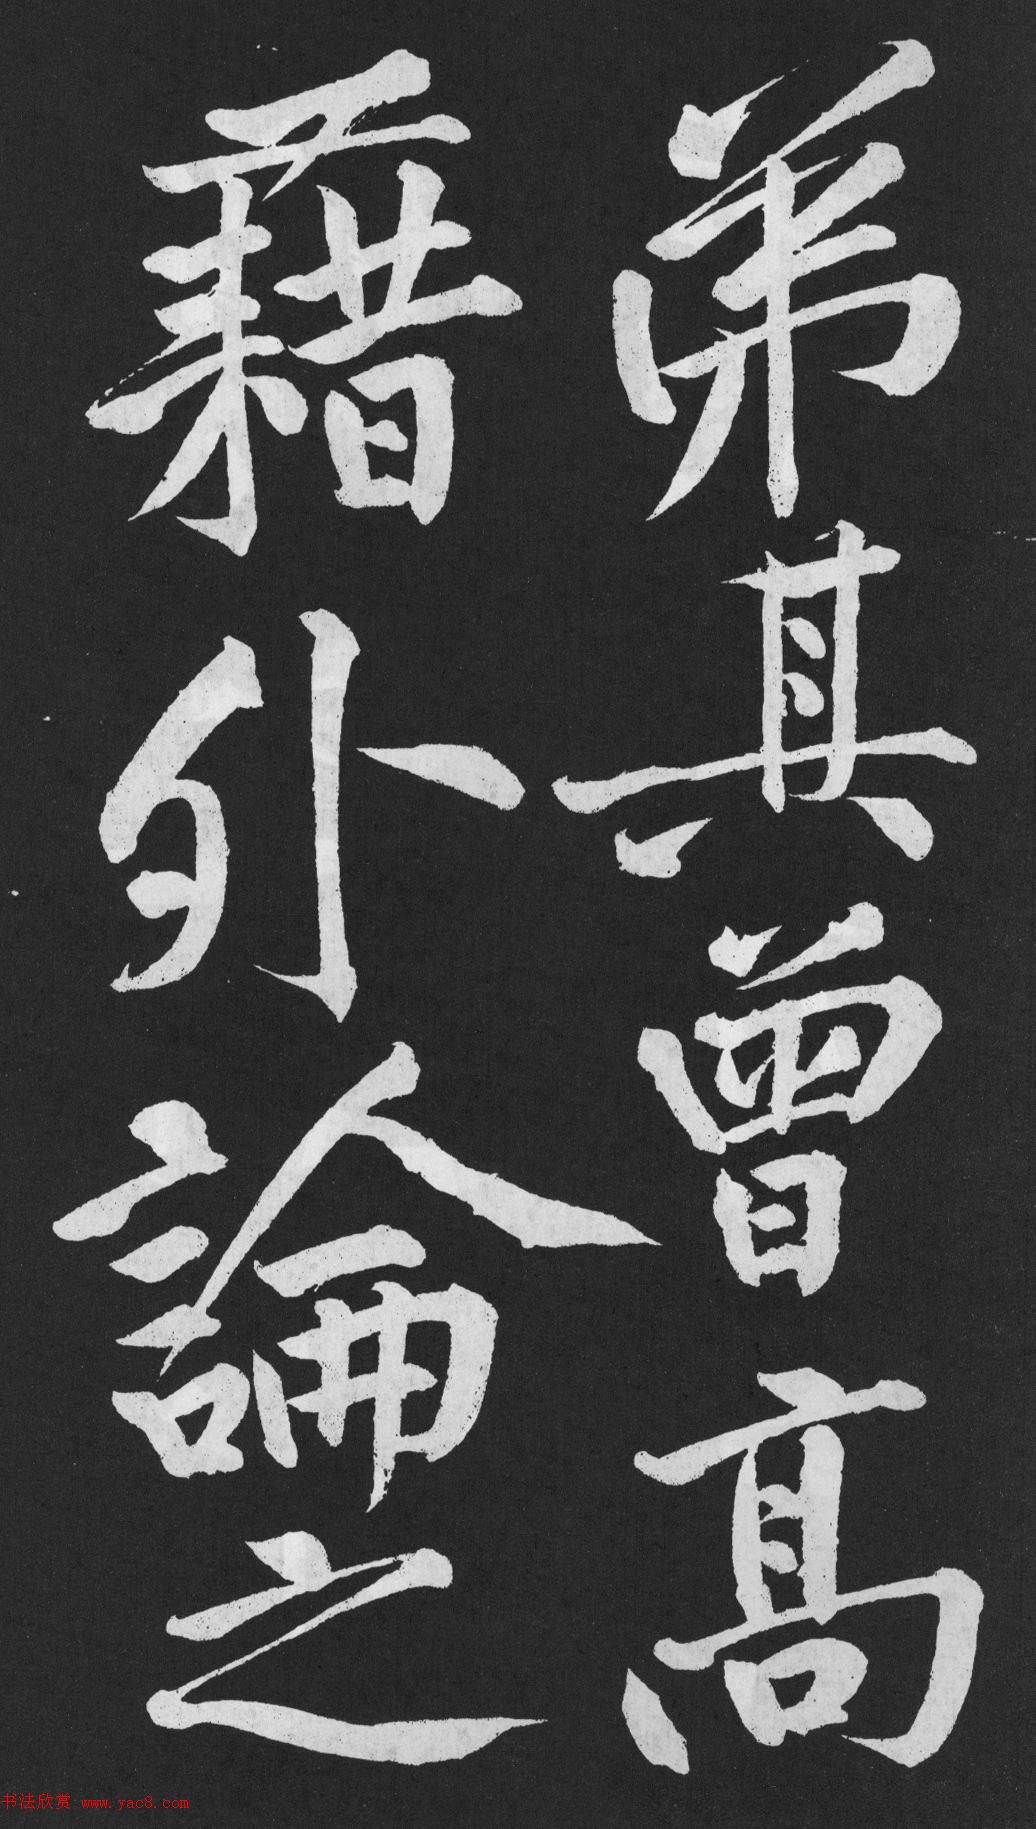 弟其曾高
藉外論之
书法欣赏 www.yac8.com